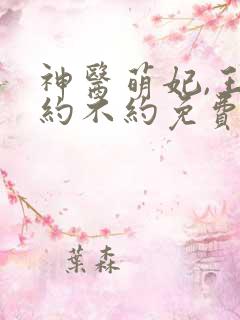 神醫萌妃,王
約不約免費
葉森